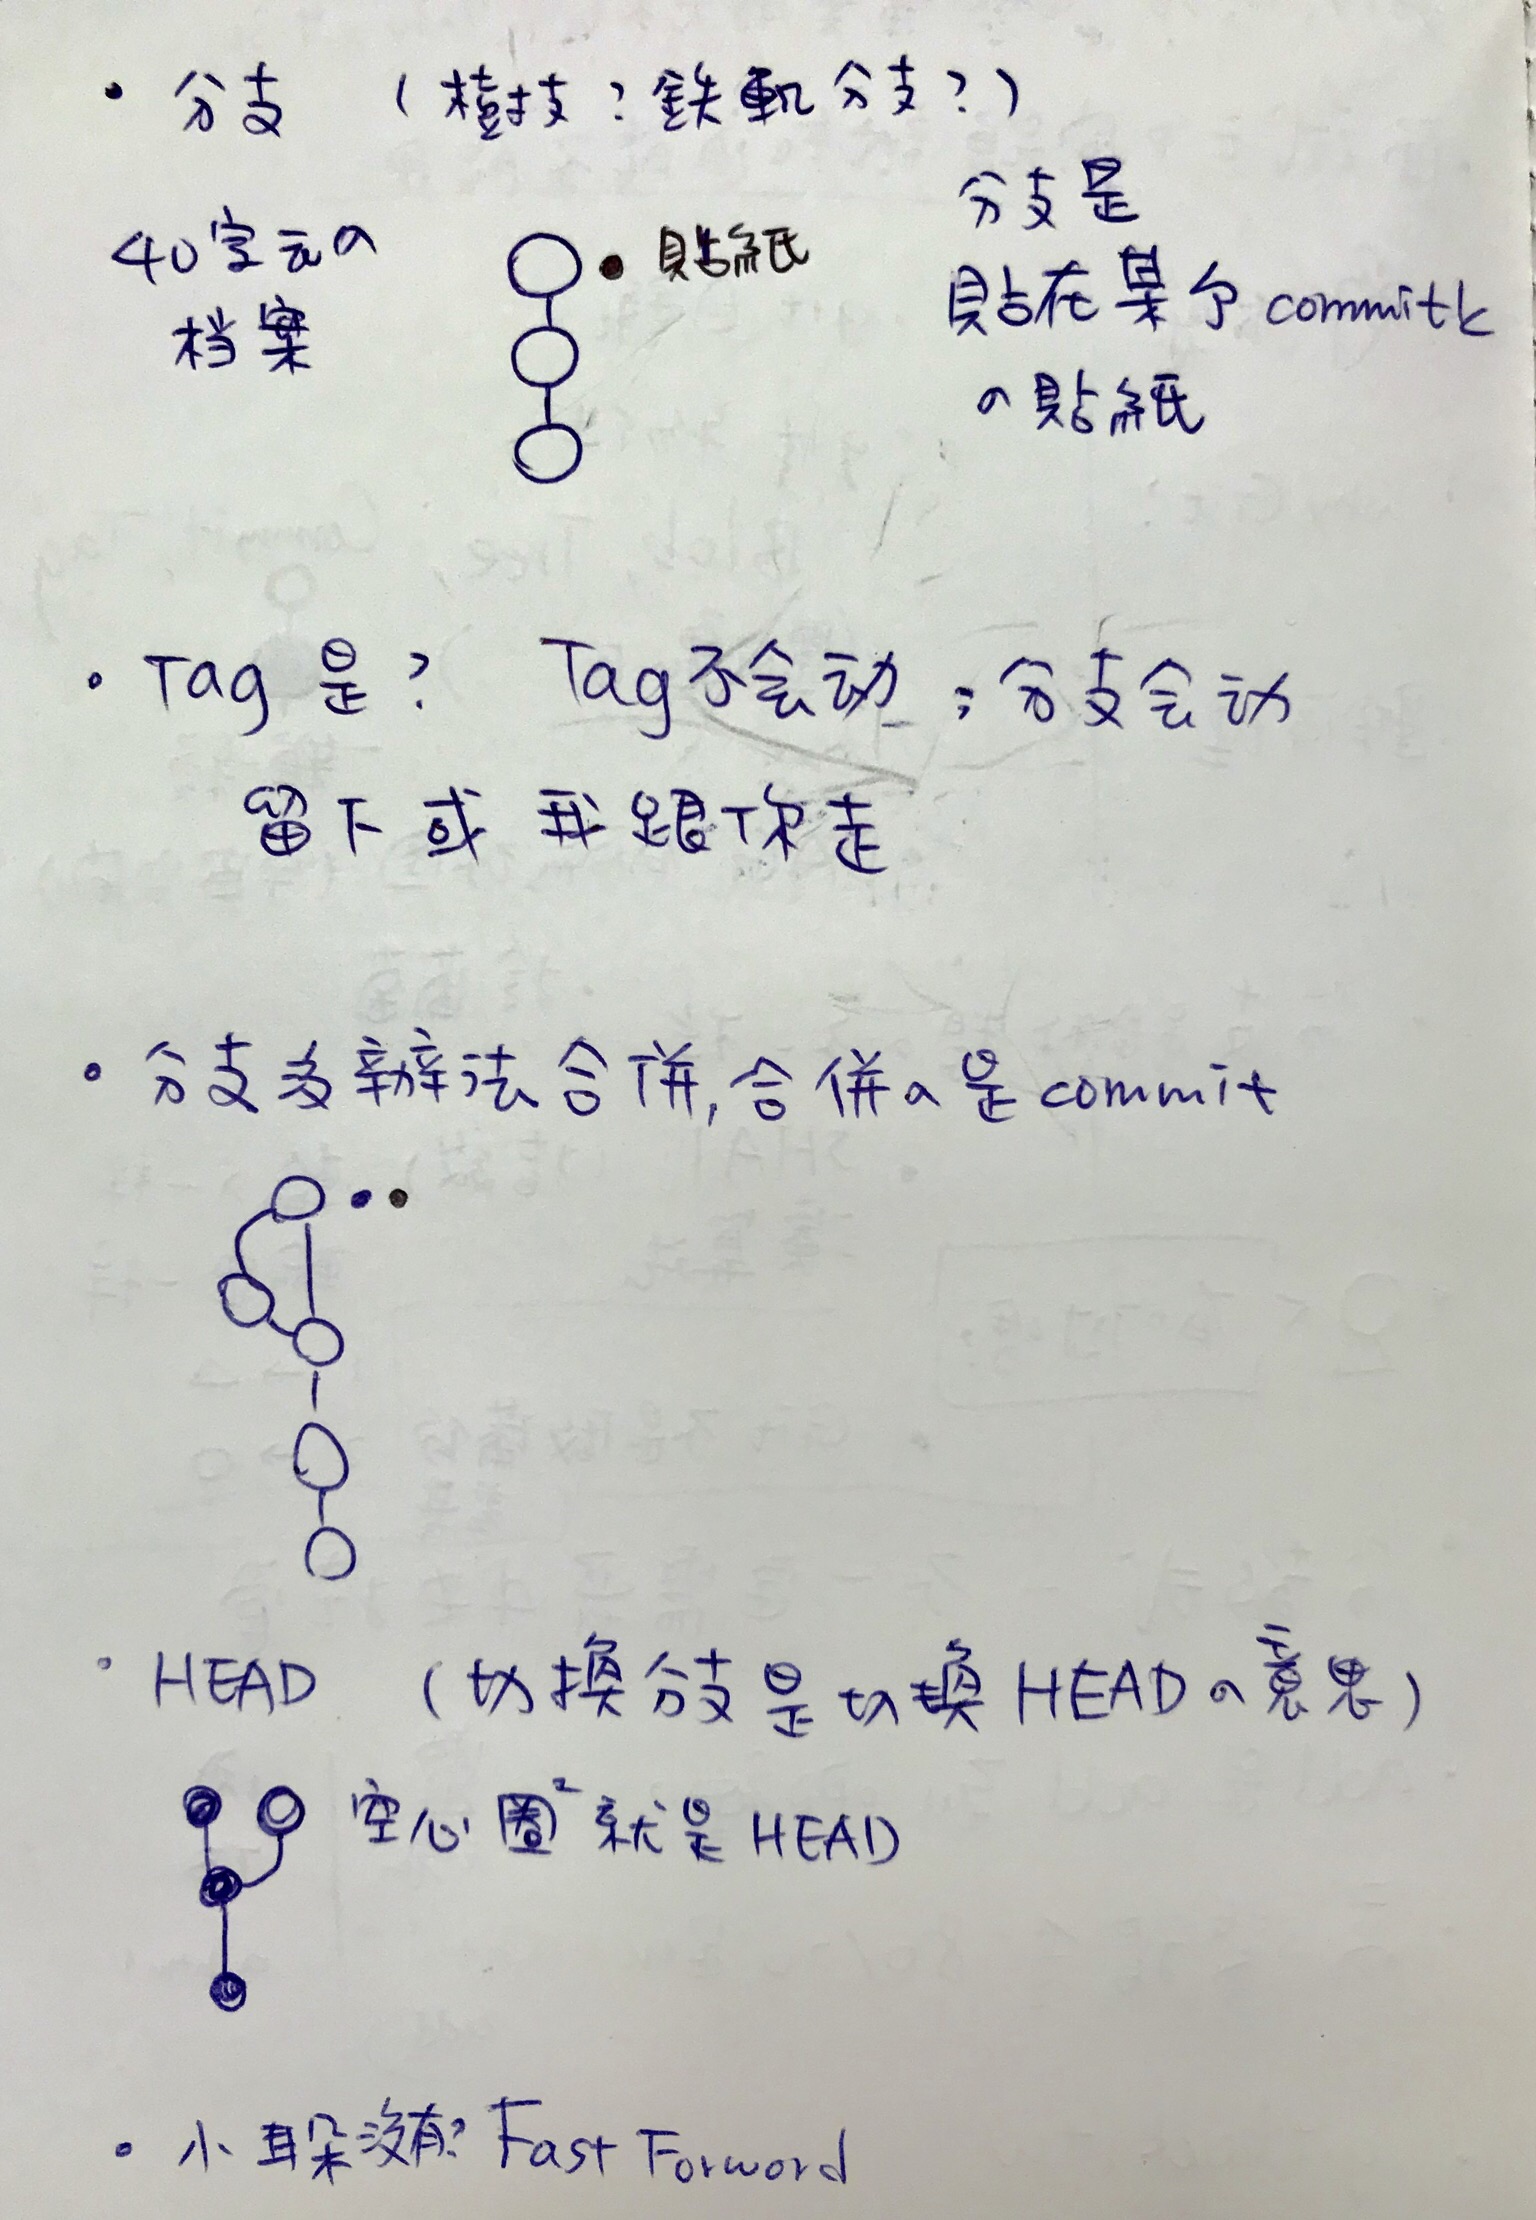 • 分支 (樹枝？鉄軌分支？)
40字元の
档案
• 貼紙
分支是
貼在某个commit上
の貼紙
• Tag 是？ Tag不会动；分支会动
留下或我跟你走
• 分支沒辦法合併,合併の是commit
• HEAD (切換分支是切換HEADの意思)
空心圈² 就是HEAD
• 小耳朵沒有？Fast Forword